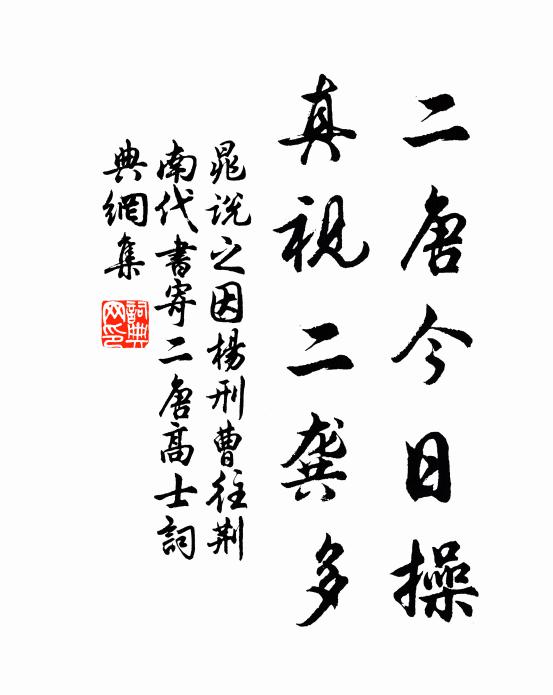 二唐今日操
真視二龔多
晁說之因楊刑曹往荆
南代書寄二唐高士詞
典網集
詞典
网印